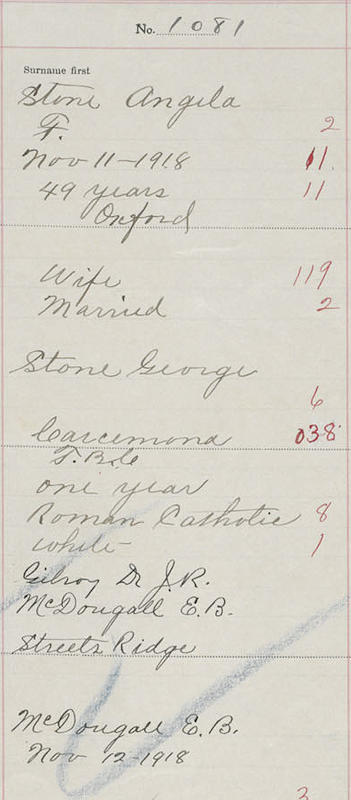 No. 1081
Surname first
Stone Angela
F. 2
Nov 11-1918 11
49 years 11
Oxford
Wife 119
Married 2
Stone George
6
Carcemona 038
T.B.C
one year
Roman Catholic 8
white 1
Gilroy Dr J.R.
McDougall E.B.
Streets Ridge
McDougall E.B.
Nov 12-1918
3